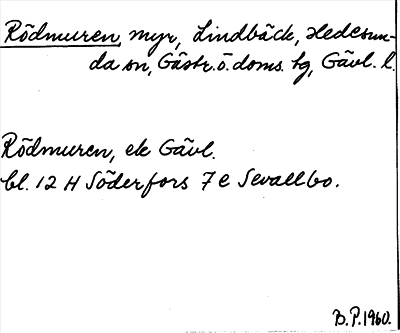 Rödmuren, myr, Lindbäck, Hedesun-
da sn, Gästr. ö. doms. tg, Gävl. l.
Rödmuren, ek Gävl.
bl. 12 H Söderfors 7 e Sevallbo.
B.P. 1960.